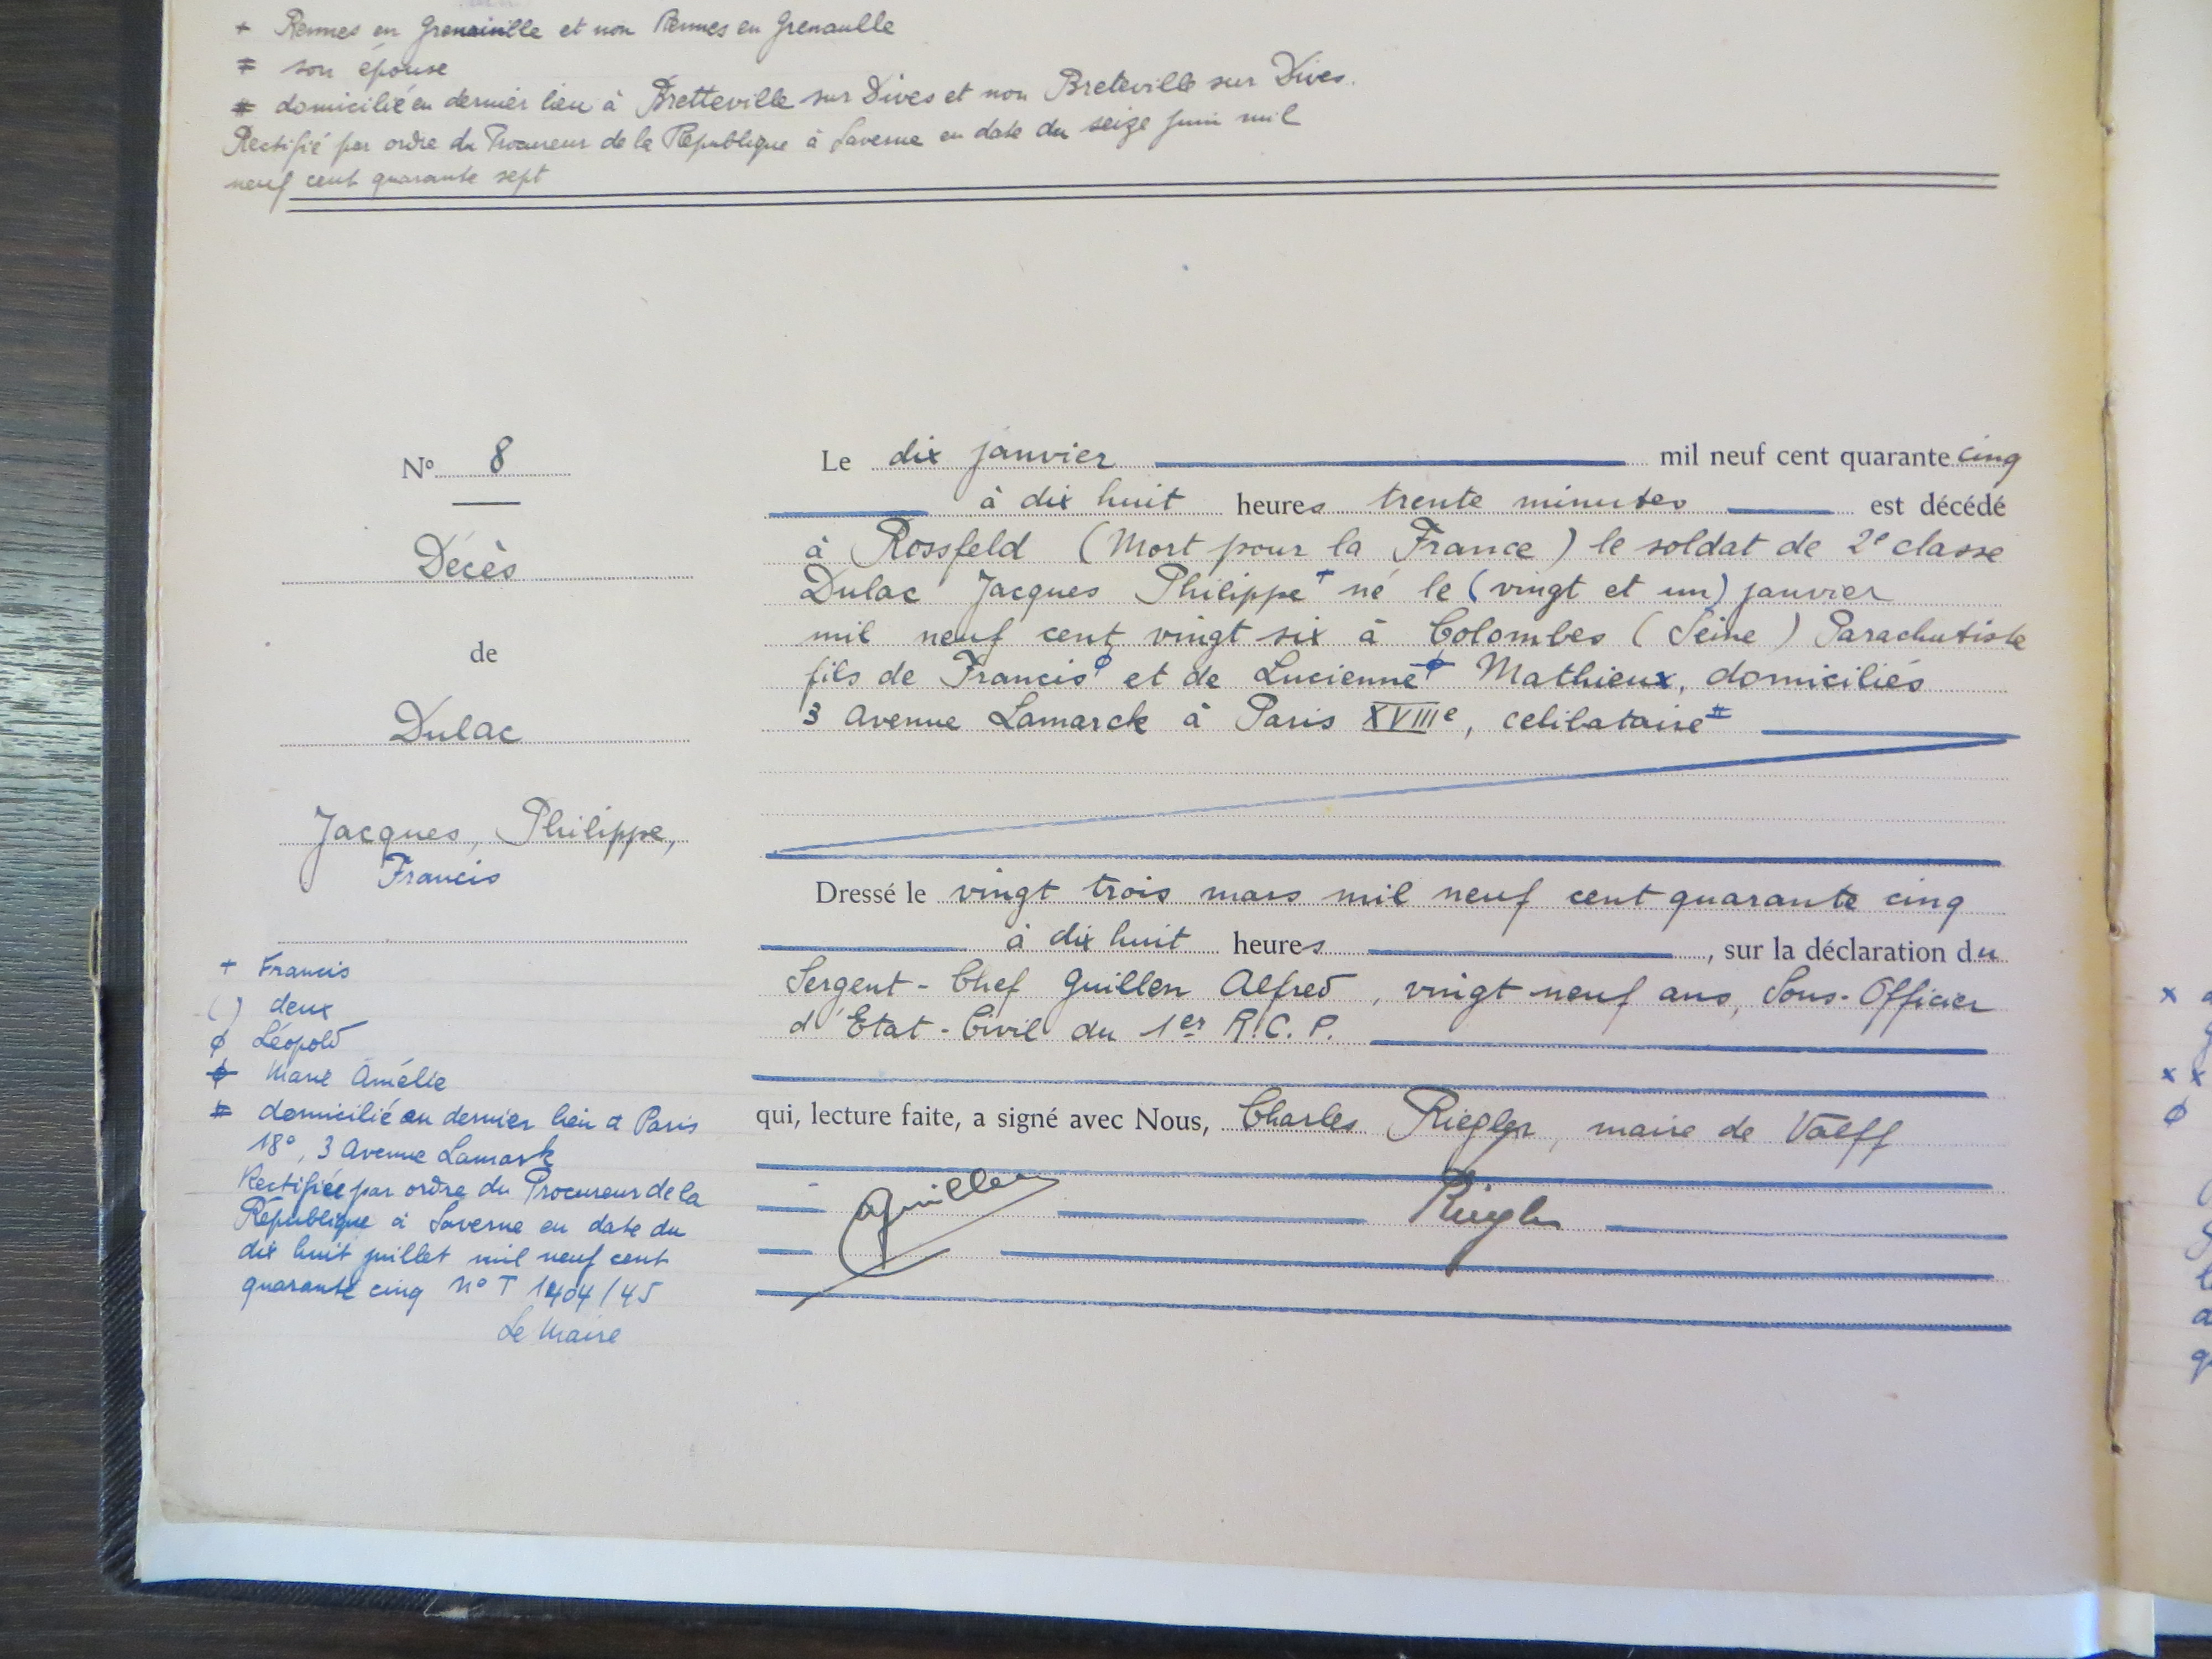 + Rennes en Grenouille et non Rennes en Grenaulle
≠ son épouse
# domicilié en dernier lieu à Bretteville sur Dives et non Breteville sur Dives.
Rectifié par ordre du Procureur de la République à Saverne en date du seize juin mil
neuf cent quarante sept
N° 8
Décès
de
Dulac
Jacques, Philippe,
Francis
+ Francis
( ) deux
ϕ Léopold
ϕ Marie Amélie
# domicilié en dernier lieu à Paris
18°, 3 Avenue Lamark
Rectifiée par ordre du Procureur de la
République à Saverne en date du
dix huit juillet mil neuf cent
quarante cinq N° T 1404/45
Le Maire
Le dix janvier mil neuf cent quarante cinq
à dix huit heures trente minutes est décédé
à Rossfeld (Mort pour la France) le soldat de 2e classe
Dulac Jacques Philippe + né le (vingt et un) janvier
mil neuf cent vingt six à Colombes (Seine) Parachutiste
fils de Francis ϕ et de Lucienne ϕ Mathieux, domiciliés
3 Avenue Lamarck à Paris XVIIIe, celibataire #
Dressé le vingt trois mars mil neuf cent quarante cinq
à dix huit heures, sur la déclaration du
Sergent-Chef Guillen Alfred, vingt neuf ans, Sous-Officier
d'Etat-Civil du 1er R.C.P.
qui, lecture faite, a signé avec Nous, Charles Riegler, maire de Valff
Guillen
Riegler